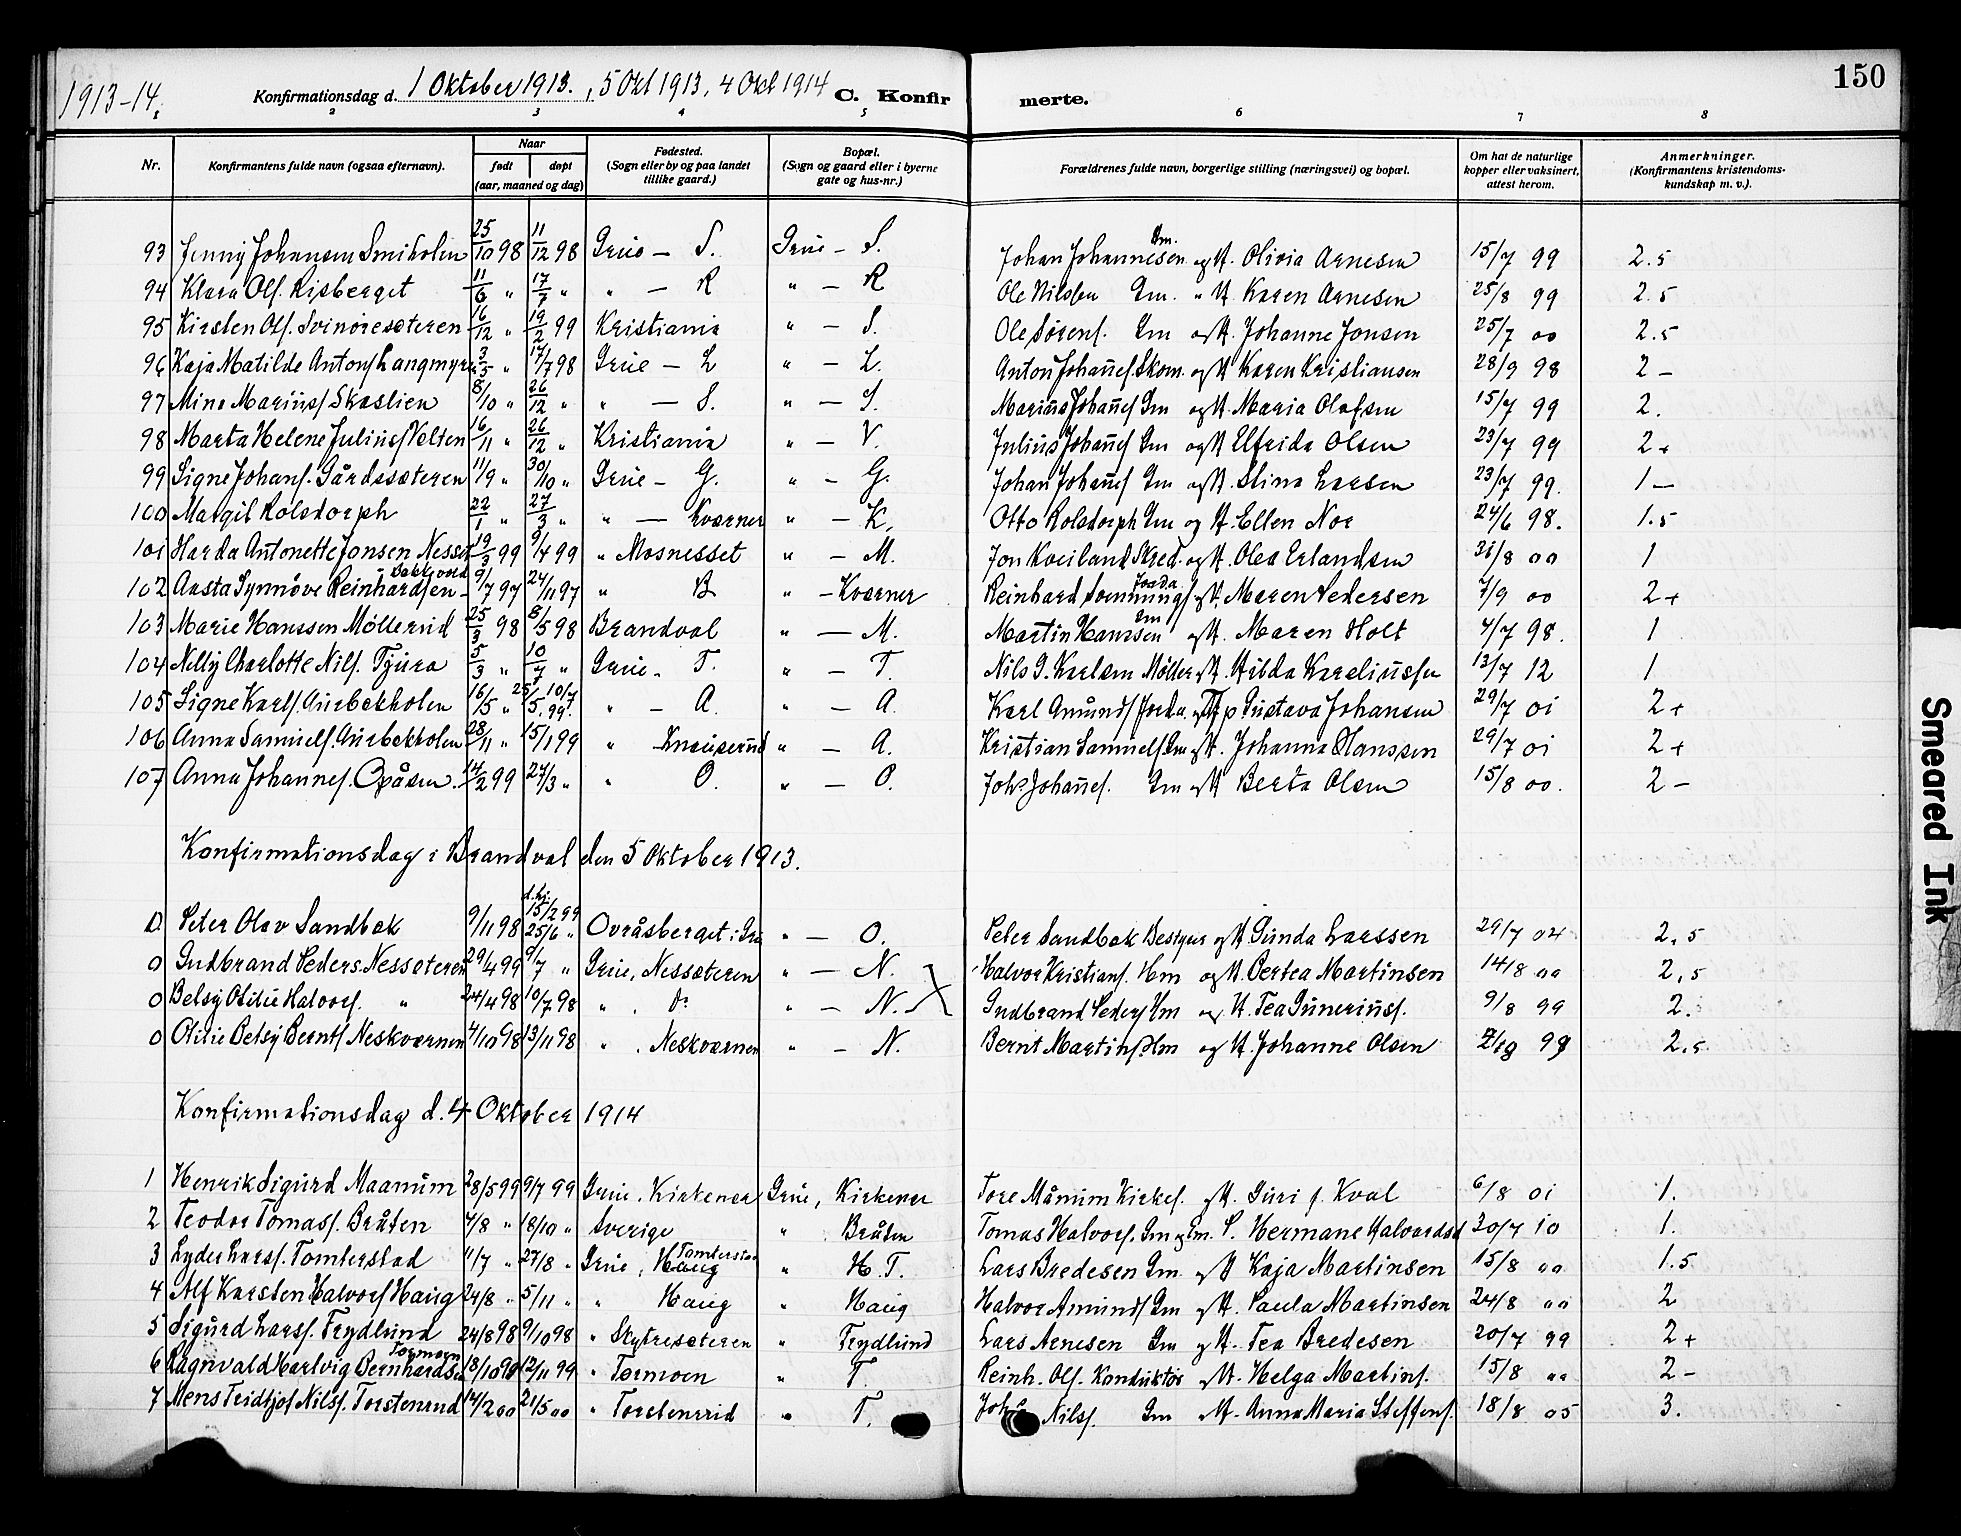 1913-14.
Konfirmationsdag d. 1 Oktober 1913., 5 Okt 1913, 4 Okt 1914 C. Konfir merte. 150
2 3 4 5 6 7 8
Nr. Konfirmantens fulde navn (ogsaa efternavn). Naar født døpt (aar, maaned og dag) Fødested. (Sogn eller by og paa landet tillike gaard.) Bopæl. (Sogn og gaard eller i byerne gate og hus-nr.) Forældrenes fulde navn, borgerlige stilling (næringsvei) og bopæl. Om hat de naturlige kopper eller vaksinert, attest herom. Anmerkninger. (Konfirmantens kristendoms-kundskap m. v.).
93 Jenny Johansen Smiholen 25/10 98 11/12 98 Grue — S. Grue — S. Johan Johannesen Gm. og H. Olivia Arnesen 15/7 99 2.5
94 Klara Ols. Risberget 11/6 " 17/7 " " — R " — R Ole Nilssen Gm. " H Karen Arnesen 25/8 99 2.5
95 Kirsten Ols. Svinøresæteren 16/12 " 19/2 99 Kristiania " — S. Ole Sørens. Gm og H. Johanne Jonsen 25/7 00 2.5
96 Kaja Matilde Antons Langmyra 3/5 " 17/7 98 Grue — L " — L. Anton Johañes Skom. og H Karen Kristiansen 28/9 98 2 —
97 Mina Marius Skaslien 8/10 " 26/12 " " — S. " — S. Marius Johañes Gm og H. Maria Olafsen 15/7 99 2.
98 Marta Helene Julius Velten 16/11 " 26/12 " Kristiania " — V. Julius Johañes Gm og H Elfrida Olsen 23/7 99 2+
99 Signe Johans. Gårdssæteren 11/9 " 30/10 " Grue — G. " — G. Johan Johañes Gm og H. Stina Larsen 23/7 99. 1 —
100 Margit Rolsdorph 22/1 " 27/3 " " — Kværner " — K. Otto Rolsdorph Gm og H. Ellen Nor 24/6 98. 1.5
101 Harda Antonette Jonsen Nesset 19/3 99 9/4 99 " Mosnesset " — M. Jon Kveiland Skred. og H. Olea Erlandsen 31/8 00 1
102 Aasta Synnöve Reinhardsen Bakkvold 9/7 97 24/11 97 " B " — Kværner Reinhard H. Maren Pedersen 7/9 00 2+
103 Marie Hanssen Möllerud 25/3 98 8/5 98 Brandval " — M. Martin Hanssen Gm og H. Maren Holt 4/7 98. 1
104 Nelly Charlotte Nils. Tjura 5/3 " 10/7 " Grue. T. " — T. Nils G. Karlsen Möller og H. Hilda Kareliussen 13/7 12 1
105 Signe Karls. Aurbekkholen 16/5 " 25/5. 10/7 99. " — A. " — A. Karl Amunds Jorda. og Gustava Johansen 29/7 01 2+
106 Anna Samuels. Aurbekkholen 28/11 " 15/1 99 " Knauserud " — A. Kristian Samuels Gm og H. Johanna Hanssen 29/7 01 2+
107 Anna Johannes. Opåsen. 14/2 99 27/3 " " O. " — O. Johs Johañes. Gm og H Berta Olsen 15/8 00. 2 —
Konfirmationsdag i Brandval den 5 Oktober 1913.
0 Peter Olav Sandbæk 9/11 98 d. hj. 15/2 99 25/6 " Ovråsberget i Gru " — O. Peter Sandbæk Bestyrer og H Gunda Larssen 29/7 04 2.5
0 Gudbrand Peders. Nessæteren 29/4 99 9/7 " Grue, Nessæteren " — N. Halvor Kristians. Hm og H. Pertea Martinsen 14/8 00 2.5
0 Betsy Otilie Halvors. " 24/4 98 10/7 98 " . do " — N. Gudbrand Peders Hm og H. Tea Gunerius. 9/8 99 2.
0 Otilie Betsy Bernts Neskværnen 4/10 98 13/11 98 " . Neskværnen " — N. Bernt Martins Hm og H. Johanne Olsen 99 2.5
Konfirmationsdag d. 4 Oktober 1914
1 Henrik Sigurd Maanum 28/5 99 9/7 99 Grue, Kirkener Grue, Kirkener Tore Månum Kirkes. og H. Guri f. Kval 6/8 01 1.
2 Teodor Tomas. Bråten 4/8 " 18/10 " Sverige " Bråten Tomas Halvors. Gm og Gm. P. Hermane Halvordsd 20/7 10 1.
3 Lyder Lars. Tomterstad 11/7 " 27/8 " Grue, Haug Tomterstad " H. T. Lars Bredesen Gm. og H Kaja Martinsen 15/8 00 1.5
4 Alf Karsten Halvors Haug 24/8 " 5/11 " " Haug " Haug Halvor Amunds Gm og H. Paula Martinsen 24/8 00 2
5 Sigurd Lars. Frydlund 24/8 98 9/10 98 " Skytresæteren " Frydlund Lars Arnesen Gm og H. Tea Bredesen 20/7 99 2+
6 Ragnvald Hartvig Bernhardsen Tormoen 18/10 12/11 99 " Tormoen " T. Reinh. Ols. Konduktør og H. Helga Martins. 15/8 00 2 —
7 Mens Fridtjof Nils. Torstenrud 14/2 00 21/5 00 " Torstensrud " T. Johs Nils. Gm og H. Anna Maria Steffens. 18/8 05 3.
Smeared Ink